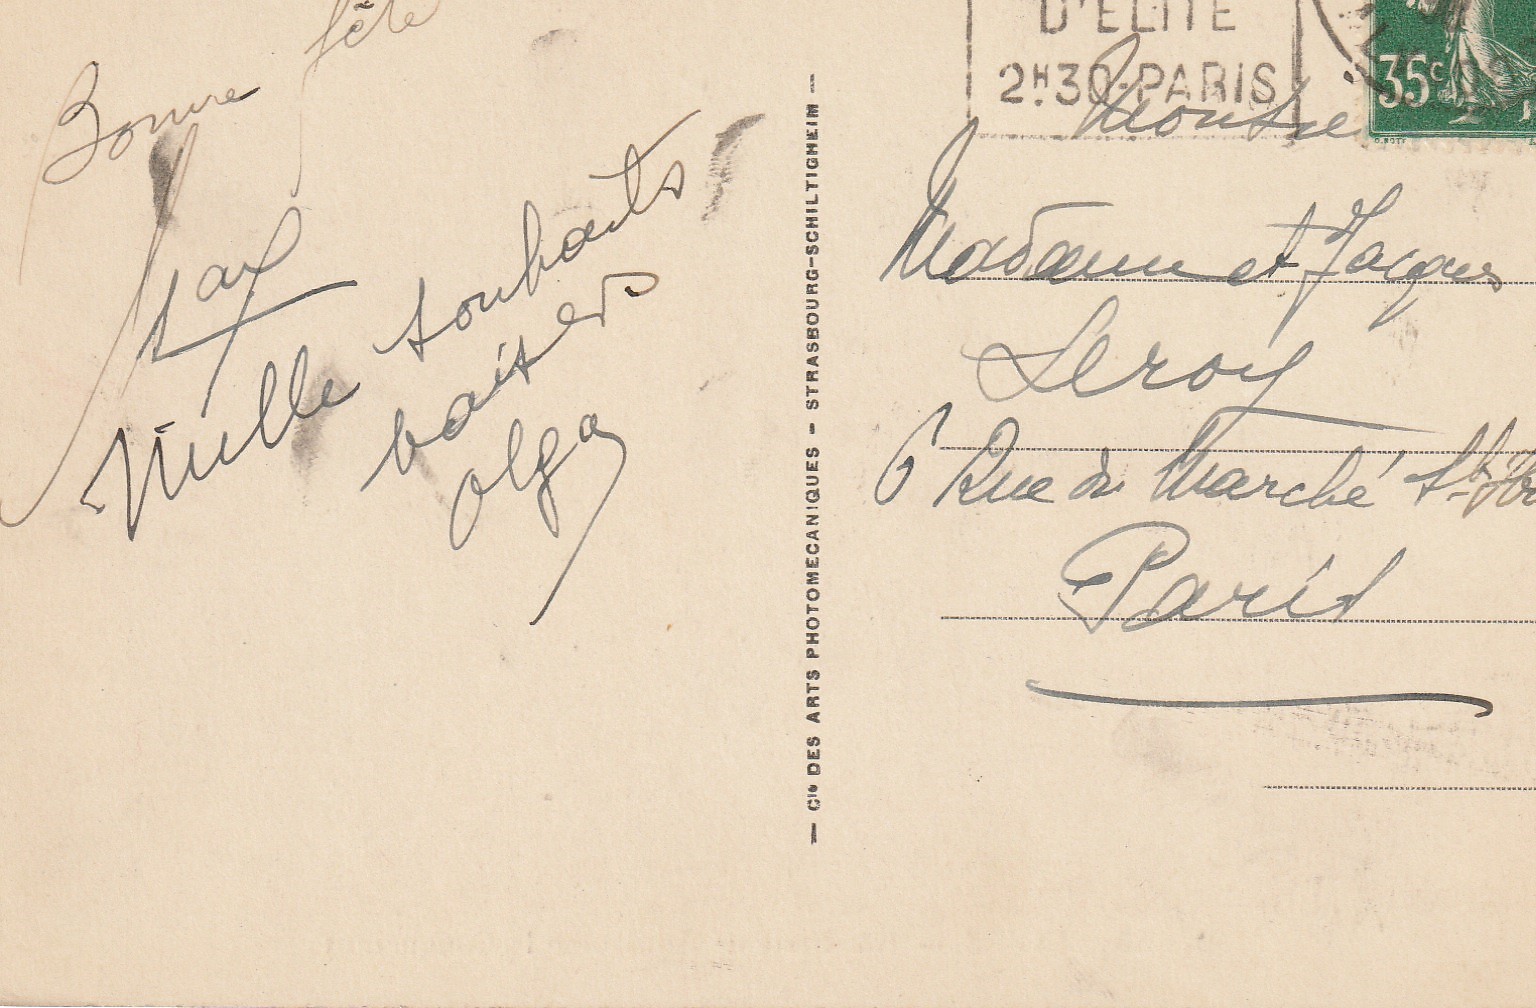 Bonne fête
Max
Mille souhaits
baisers
Olga
— Cie DES ARTS PHOTOMECANIQUES – STRASBOURG-SCHILTIGHEIM —
D'ELITE
2H30·PARIS
35c
Monsie
Madame et Jacques
Leroy
6 Rue du Marché St-Ho
Paris